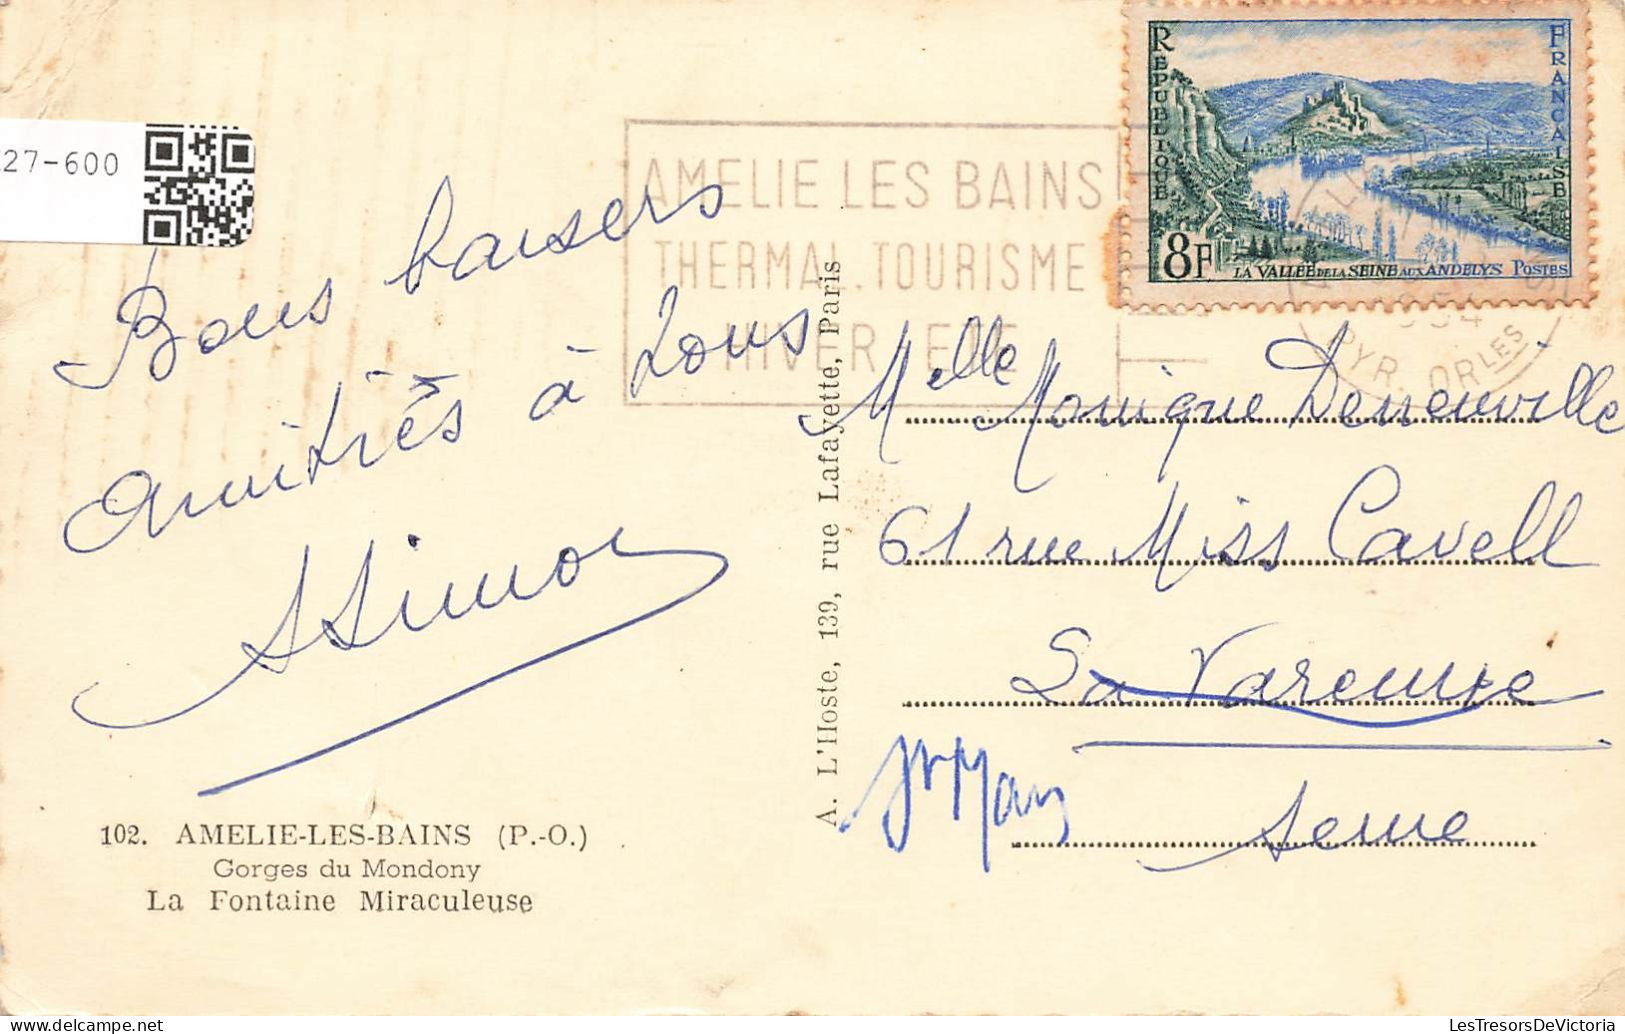 27-600
Bons baisers
Amitiés à tous
SSimon
102. AMELIE-LES-BAINS (P.-O.)
Gorges du Mondony
La Fontaine Miraculeuse
A. L'Hoste, 139, rue Lafayette, Paris
AMELIE LES BAINS
THERMAL.TOURISME
HIVER ETE
PYR. ORLES
REPUBLIQUE FRANCAISE
8F
LA VALLEE DE LA SEINE AUX ANDELYS POSTES
Melle Monique Denneuville
61 rue Miss Cavell
La Varenne
St Maur
Seine
LesTresorsDeVictoria